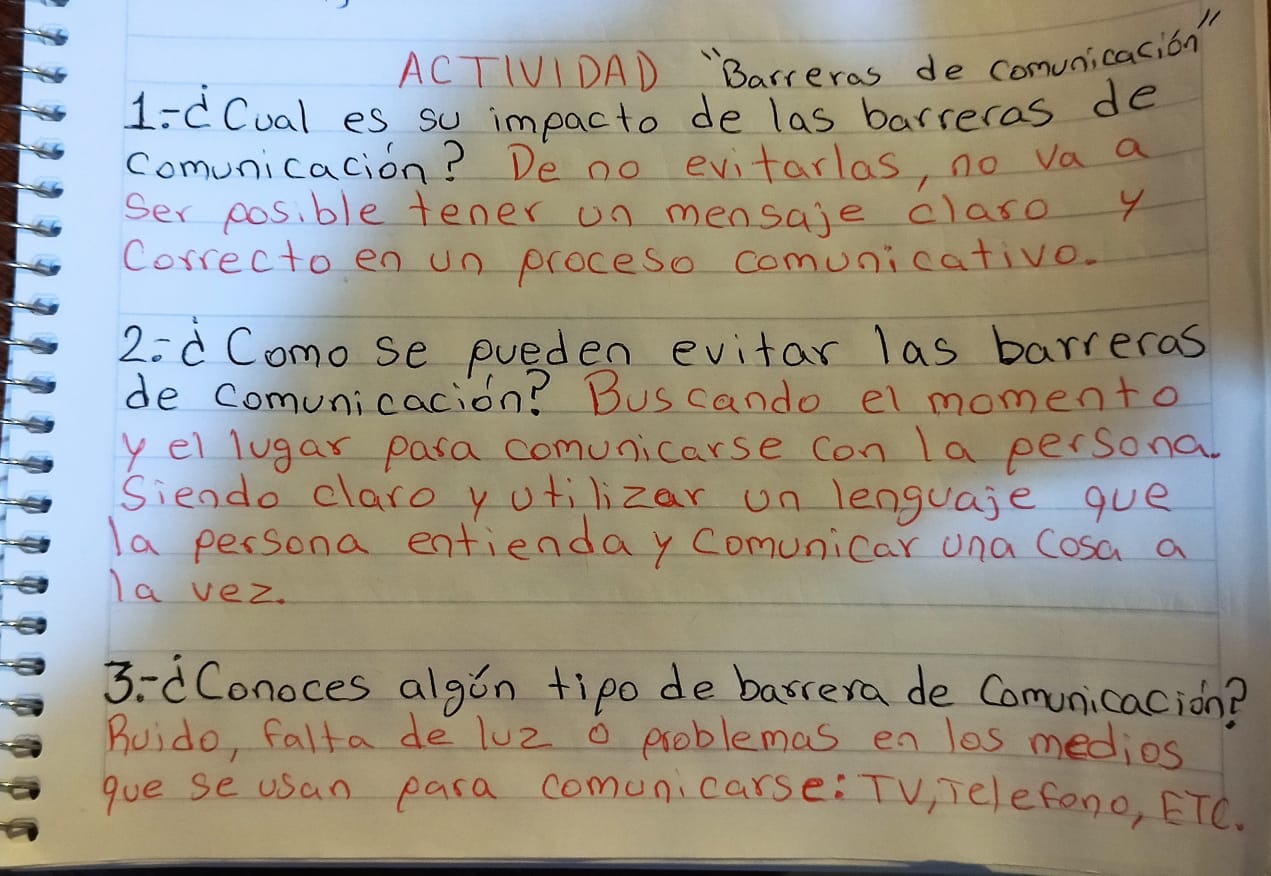 ACTIVIDAD "Barreras de comunicación"
1.-¿Cual es su impacto de las barreras de
comunicación? De no evitarlas, no va a
Ser posible tener un mensaje claro y
Correcto en un proceso comunicativo.
2.-¿Como se pueden evitar las barreras
de comunicación? Buscando el momento
y el lugar para comunicarse con la persona.
Siendo claro y utilizar un lenguaje que
la persona entienda y comunicar una cosa a
la vez.
3.-¿Conoces algún tipo de barrera de Comunicación?
Ruido, falta de luz o problemas en los medios
que se usan para comunicarse: TV, Telefono, ETC.